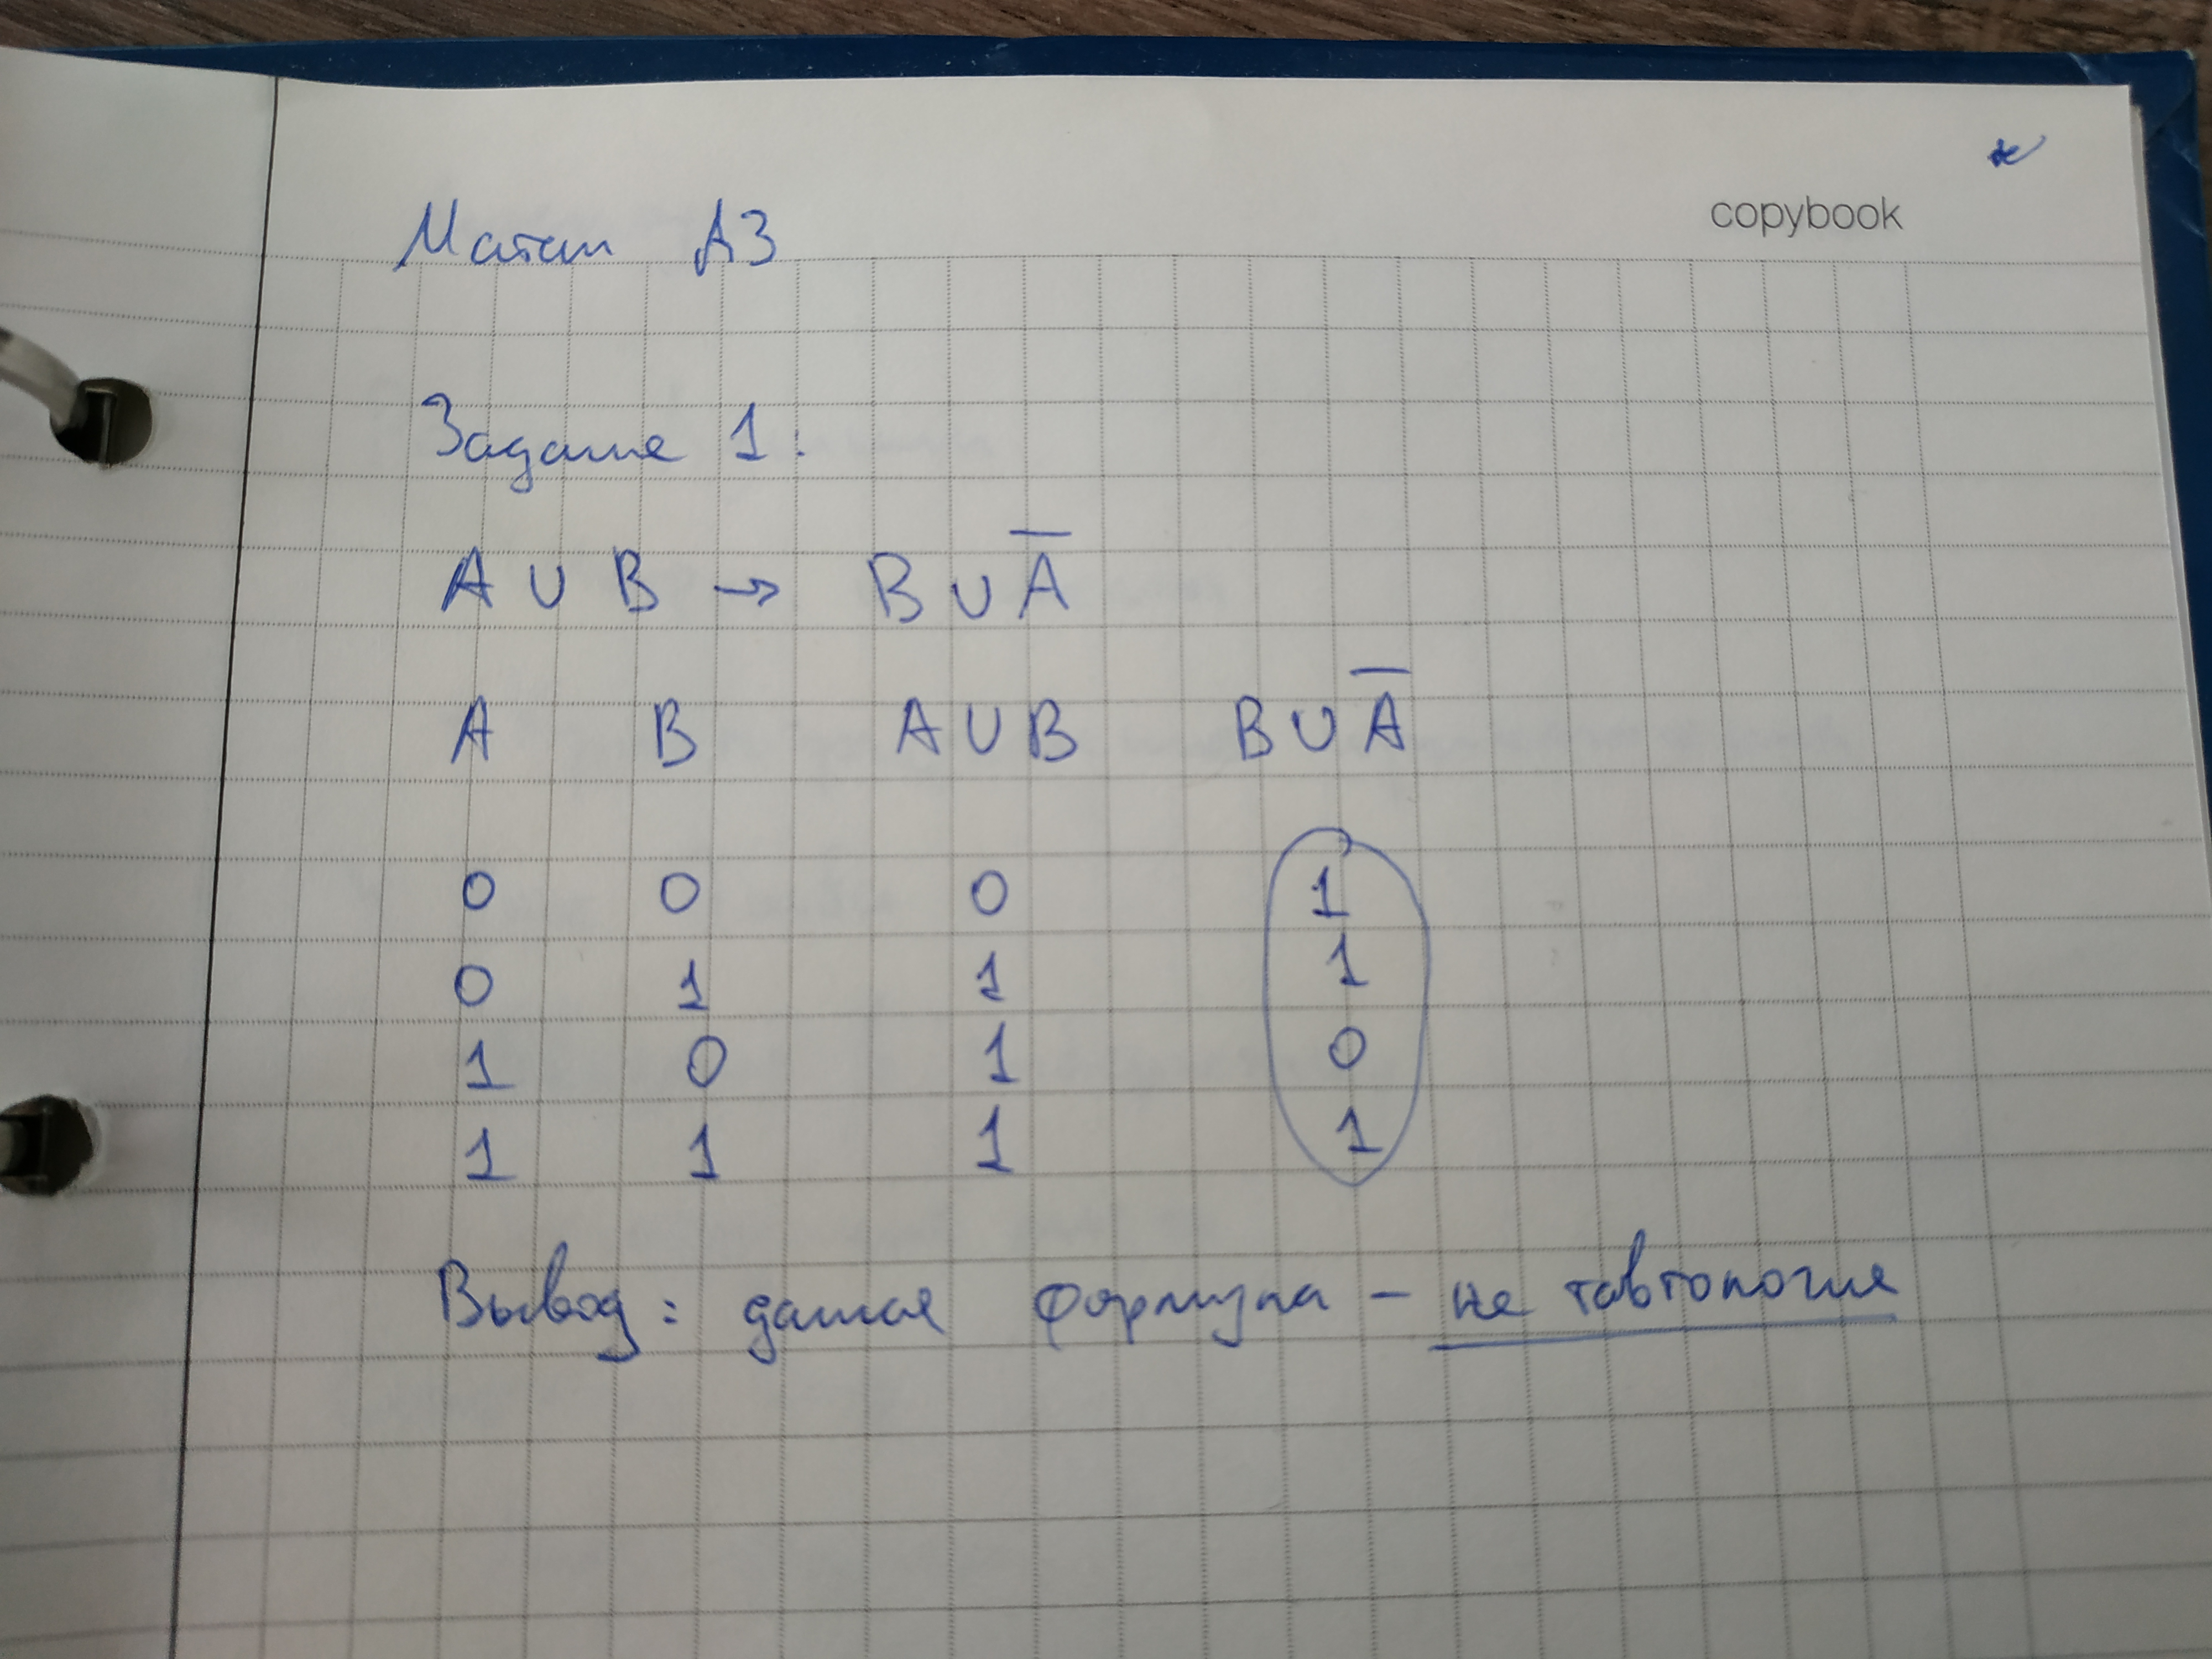 copybook
Матан ДЗ
Задание 1:
A ∪ B → B ∪ A̅
A B A ∪ B B ∪ A̅
0 0 0 1
0 1 1 1
1 0 1 0
1 1 1 1
Вывод: данная формула - не тавтология